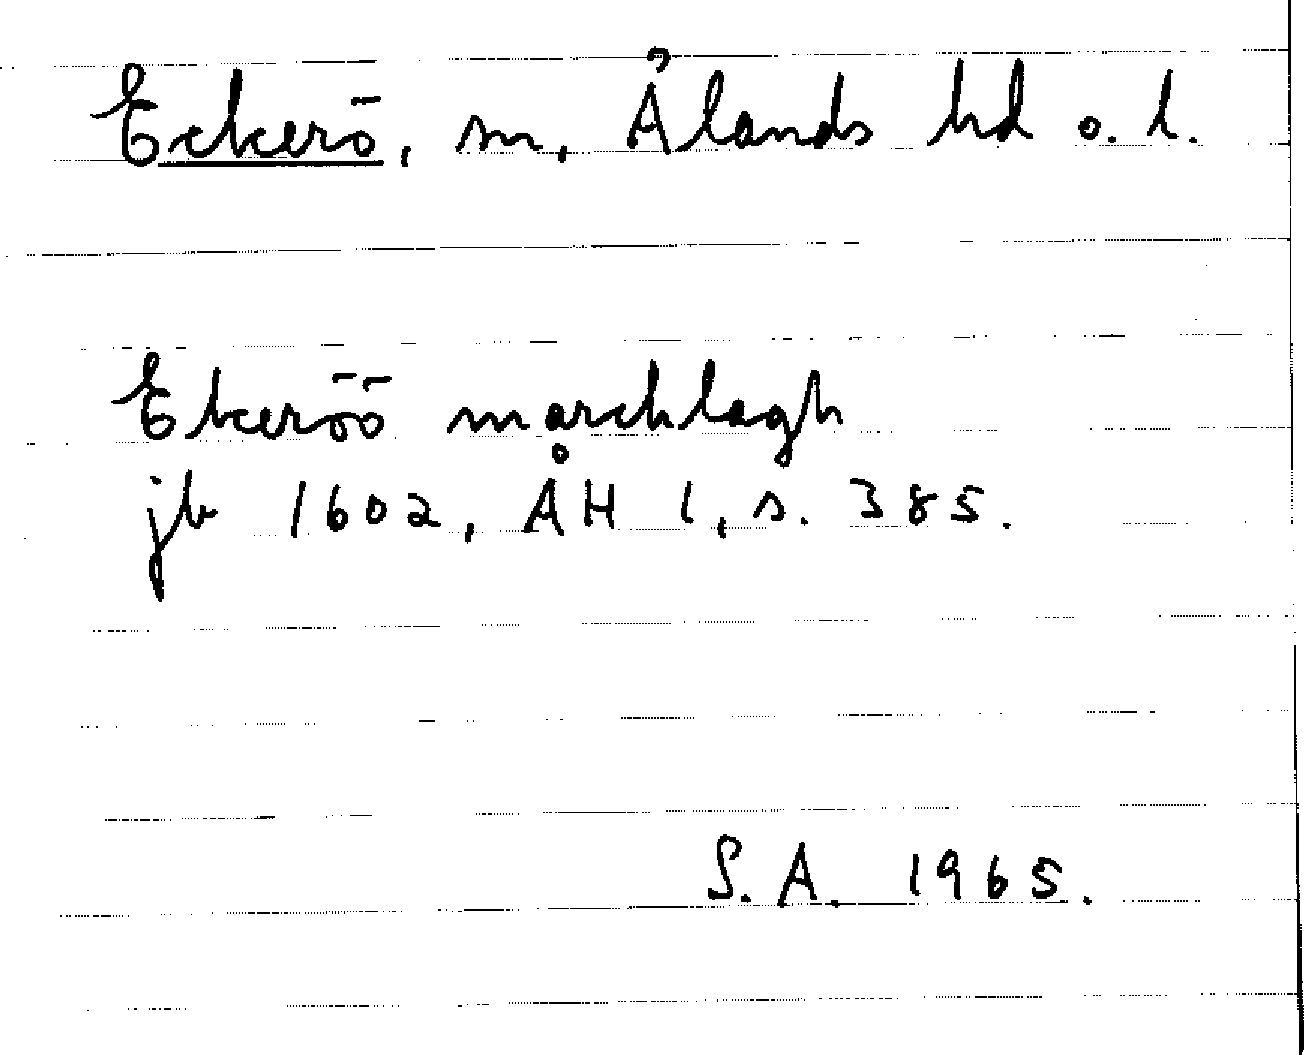 Eckerö, sn, Ålands hd o. l.
Ekeröö marchlagh
jb 1602, ÅH 1, s. 385.
S. A. 1965.